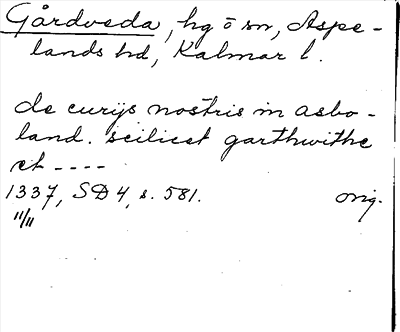 Gårdveda, hg ō sn, Aspe-
lands hd, Kalmar l.
de curijs nostris in asbo-
land. scilicet garthwithe
et ----
1337, SD 4, s. 581. orig.
11/11